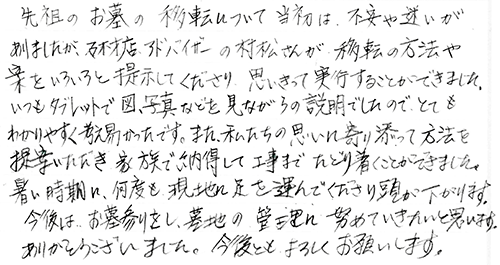 先祖のお墓の移転について当初は、不安や迷いが
ありましたが、石材店アドバイザーの村松さんが、移転の方法や
案をいろいろと提示してくださり、思いきって実行することができました。
いつもタブレットで図、写真などを見ながらの説明でしたので、とても
わかりやすく安易かったです。また、私たちの思いに寄り添って方法を
提案いただき家族で納得して工事までたどり着くことができました。
暑い時期に、何度も現地に足を運んでくださり頭が下がります。
今後は、お墓参りをし、墓地の管理に努めていきたいと思います。
ありがとうございました。今後ともよろしくお願いします。